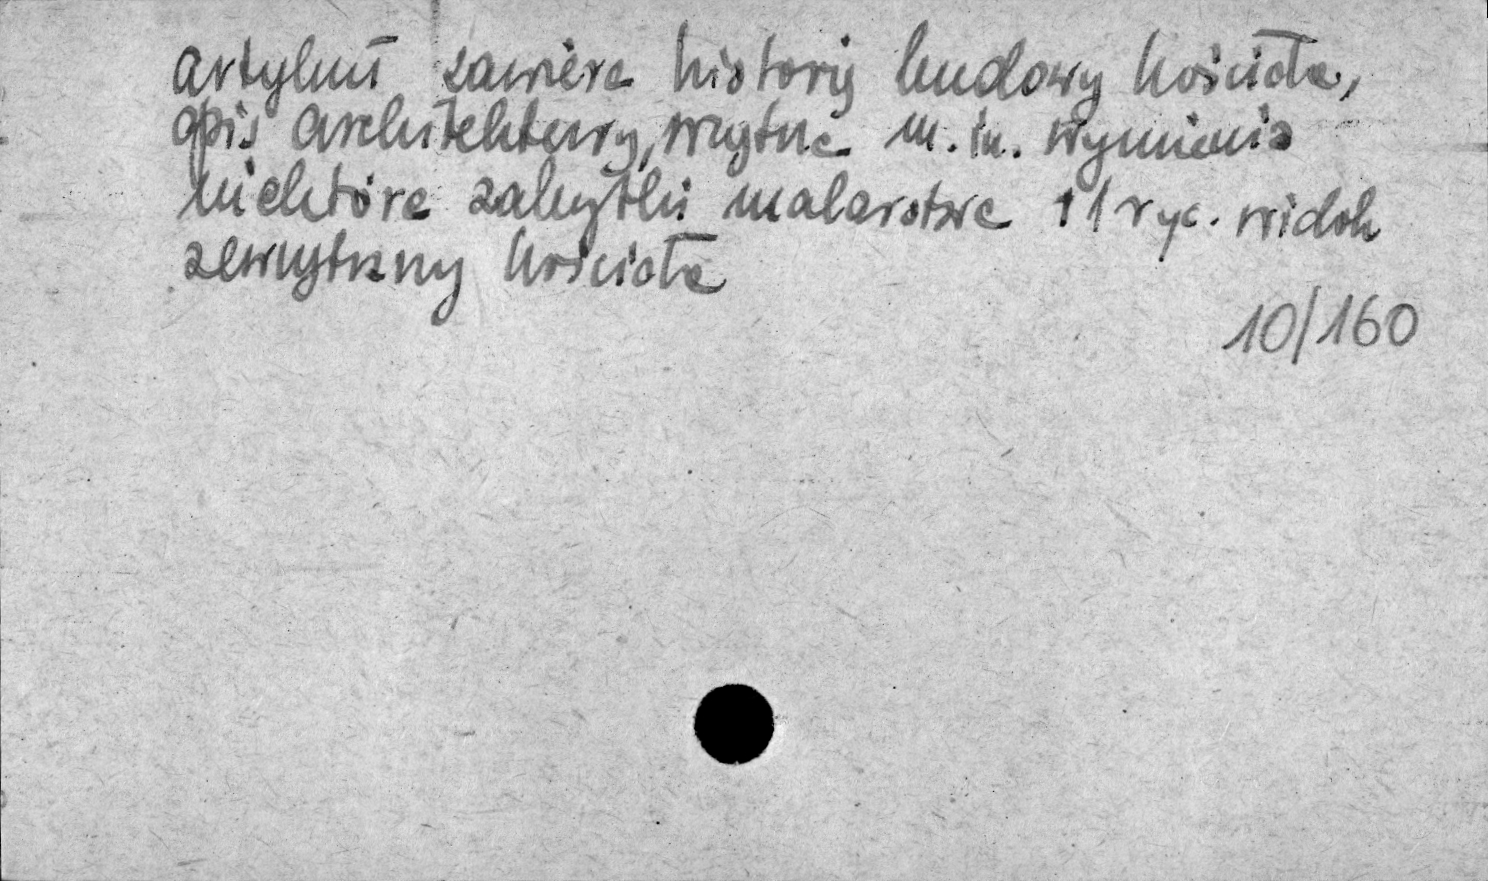 artykuł zawiera historię budowy kościoła,
opis architektury, wnętrze m.in. wymienia
niektóre zabytki malarstwa 11 ryc. widok
zewnętrzny kościoła
10/160